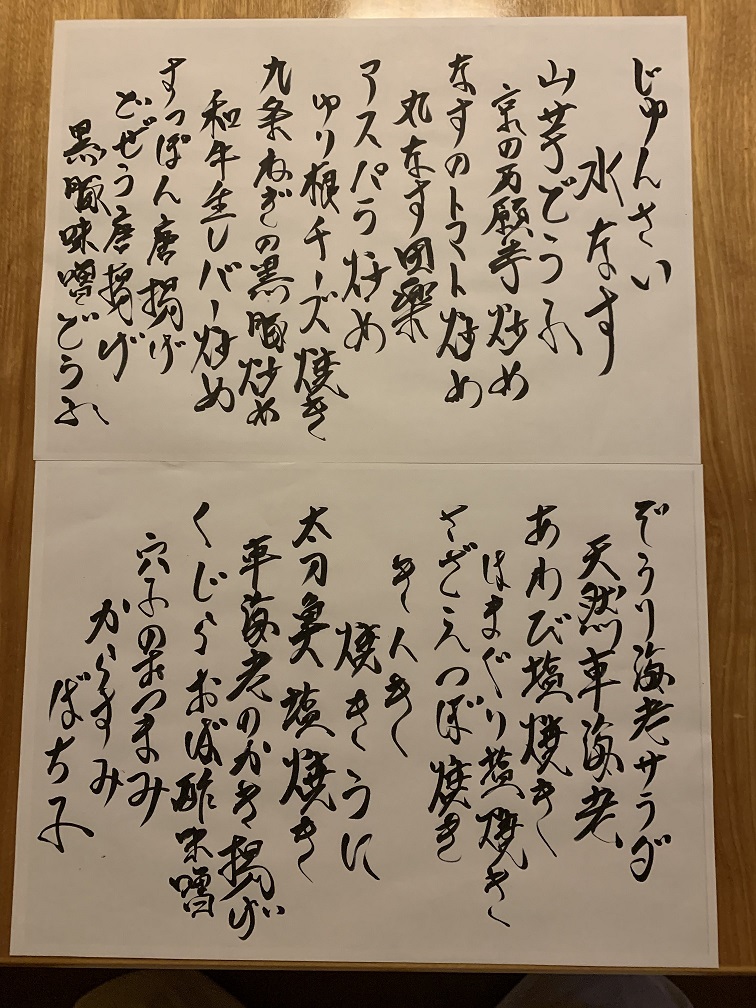 じゅんさい
水なす
山芋どうふ
京の万願寺炒め
なすのトマト炒め
丸なす田楽
アスパラ炒め
ゆり根チーズ焼き
九条ねぎの黒豚炒め
和牛生レバー炒め
すっぽん唐揚げ
どぜう唐揚げ
黒豚味噌どうふ
ぞうり海老サラダ
天然車海老
あわび塩焼き
はまぐり塩焼き
さざえつぼ焼き
きんき
焼きうに
太刀魚塩焼き
車海老のかき揚げ
くじらおば酢味噌
穴子のおつまみ
からすみ
ばち子